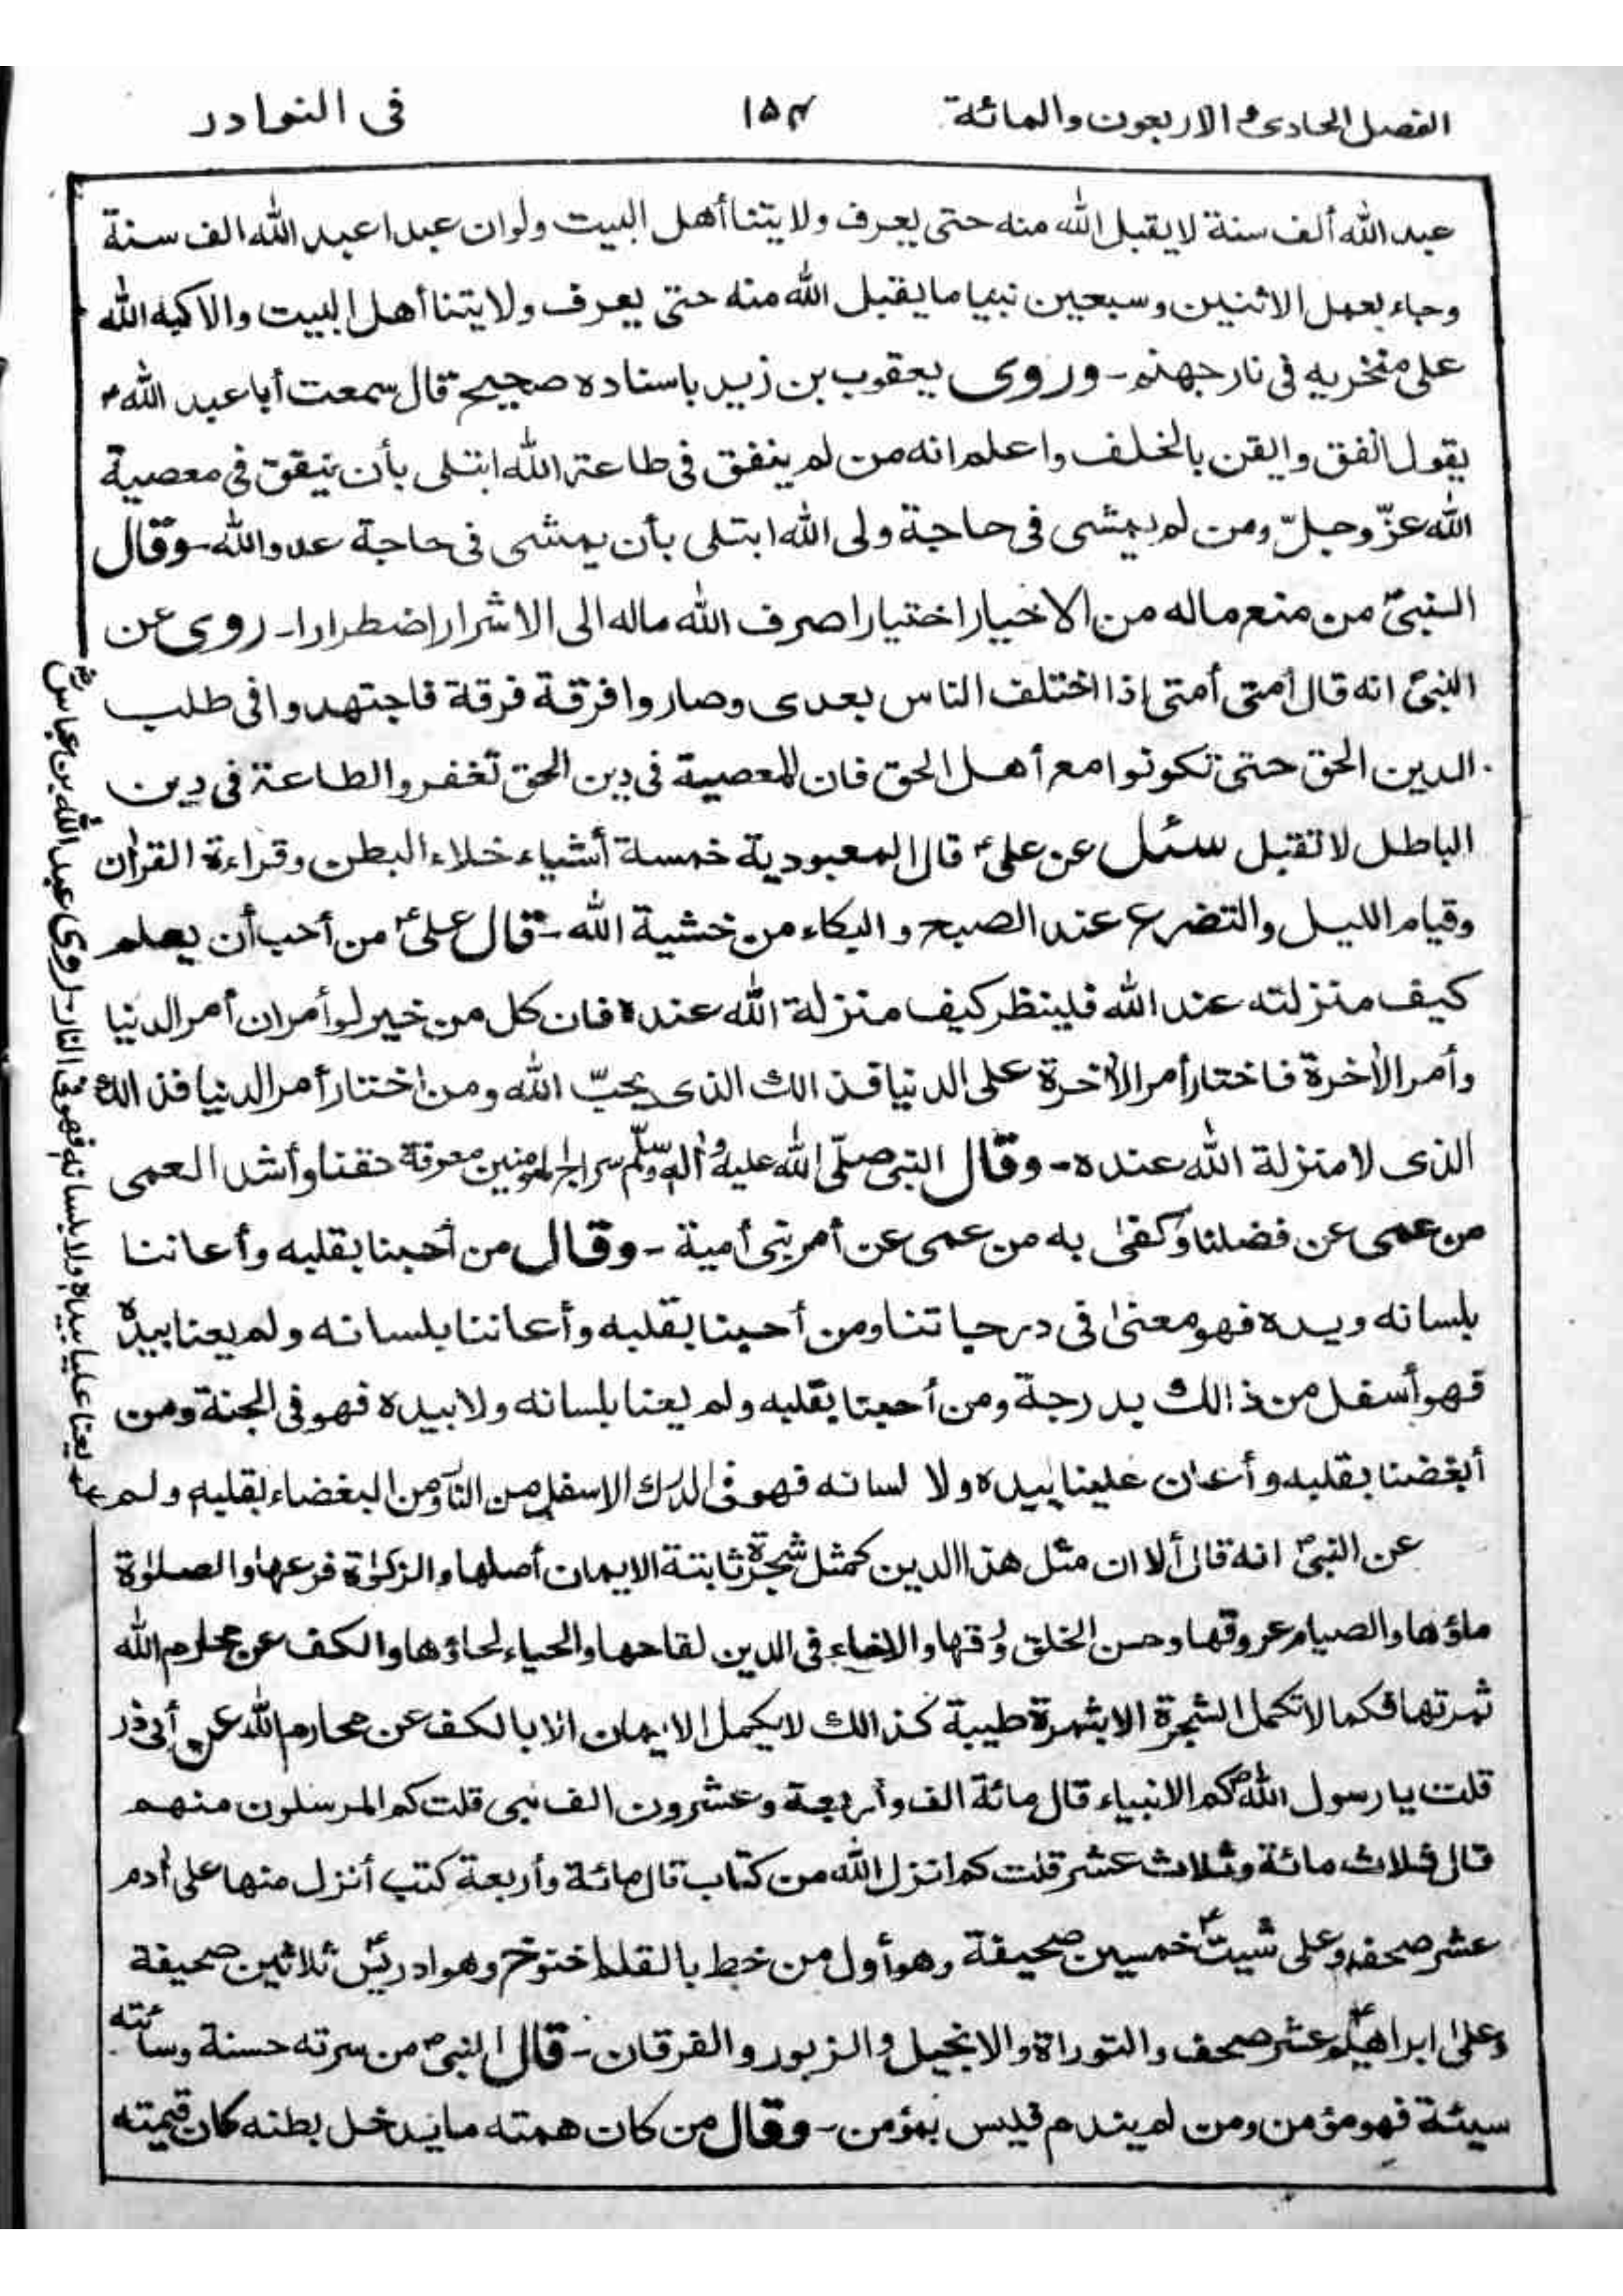 الفصل الحادى والاربعون والمائة ١٥٤ فى النوادر
عبد الله ألف سنة لا يقبل الله منه حتى يعرف ولايتنا أهل البيت ولو ان عبدا عبد الله الف سنة
وجاء بعمل الاثنين وسبعين نبيا ما يقبل الله منه حتى يعرف ولايتنا أهل البيت والا كبه الله
على منخريه فى نار جهنم - وروى يعقوب بن زيد باسناده صحيح قال سمعت أبا عبد الله ؑ
يقول أنفق وايقن بالخلف واعلم انه من لم ينفق فى طاعة الله ابتلى بأن ينفق فى معصية
الله عزّ وجلّ ومن لم يمشى فى حاجة ولى الله ابتلى بأن يمشى فى حاجة عدو الله - وقال
النبىؐ من منع ماله من الاخيار اختيارا صرف الله ماله الى الاشرار اضطرارا - روى عن
النبىؐ انه قال أمتى أمتى إذا اختلف الناس بعدى وصاروا فرقة فرقة فاجتهدوا فى طلب
الدين الحق حتى تكونوا مع أهل الحق فان المعصية فى دين الحق تغفر والطاعة فى دين
الباطل لا تقبل سئل عن علىؑ قال المعبودية خمسة أشياء خلاء البطن وقراءة القرأن
وقيام الليل والتضرع عند الصبح و البكاء من خشية الله - قال علىؑ من أحب أن يعلم
كيف منزلته عند الله فلينظر كيف منزلة الله عنده فان كل من خير لو أمران أمر الدنيا
وأمر الأخرة فاختار أمر الأخرة على الدنيا فذالك الذى يحبّ الله ومن اختار أمر الدنيا فذالك
الذى لا منزلة الله عنده - وقال النبى صلّى الله عليه وأله وسلّم سراج المومنين معرفة حقنا وأشد العمى
من عمى عن فضلنا وكفى به من عمى عن أمر بنى أمية - وقال من أحبنا بقلبه وأعاننا
بلسانه ويده فهو معنىٰ فى درجاتنا ومن أحبنا بقلبه وأعاننا بلسانه ولم يعنا بيده
فهو أسفل من ذالك بدرجة ومن أحبنا بقلبه ولم يعنا بلسانه ولا بيده فهو فى الجنة ومن
أبغضنا بقلبه وأعان علينا بيده ولا لسانه فهو فى الدرك الاسفل من النار ومن البغضاء بقلبه ولم
يعنا علينا بيده ولا بلسانه فهو فى النار - روى عبد الله بن عباسؓ
عن النبىؐ انه قال ألا ان مثل هذا الدين كمثل شجرة ثابتة الايمان أصلها والزكوٰة فرعها والصلوٰة
ماؤها والصيام عروقها وحسن الخلق ورقها والاخاء فى الدين لقاحها والحياء لحاؤها والكف عن محارم الله
ثمرتها فكما لا تكمل الشجرة الا بثمرة طيبة كذالك لا يكمل الايمان الا بالكف عن محارم الله عن أبى ذر
قلت يا رسول اللهؐ كم الانبياء قال مائة الف وأربعة وعشرون الف نبى قلت كم المرسلون منهم
قال ثلاث مائة وثلاث عشر قلت كم انزل الله من كتاب قال مائة وأربعة كتب أنزل منها على أدم
عشر صحف وعلى شيثؑ خمسين صحيفة وهو أول من خط بالقلم اخنوخ وهو ادريسؑ ثلاثين صحيفة
وعلىٰ ابراهيمؑ عشر صحف والتوراة والانجيل والزبور والفرقان - قال النبىؐ من سرته حسنة وسائته
سيئة فهو مؤمن ومن لم يندم فليس بمؤمن - وقال من كان همته ما يدخل بطنه كان قيمته